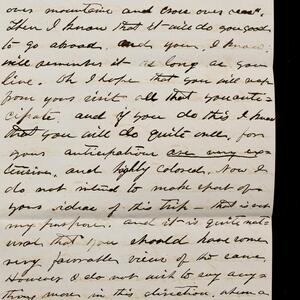 over mountains and cross over seas".
Then I know that it will do you good
to go abroad, and you, I know,
will remember it as long as you
live. Oh I hope that you will reap
from your visit, all that you anti-
cipate, and if you do this I know
that you will do quite well, for
your anticipations are very ex-
tensive, and highly colored. Now I
do not intend to make sport of
your ideas of this trip - that is not
my purpose. and it is quite nat-
ural that you should have some
very favorable view of the case.
However I do not wish to say any-
thing more in this direction, when a